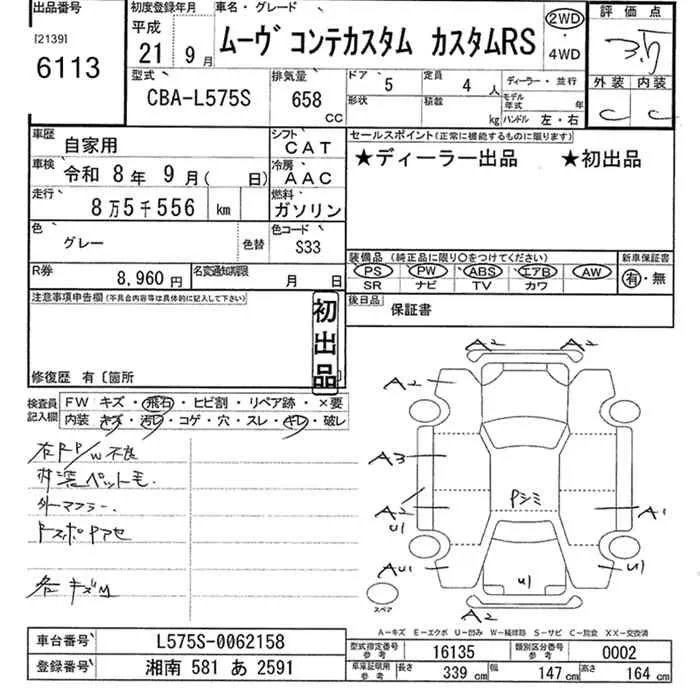 出品番号
[2139]
6113
初度登録年月
平成
21 9月
車名・グレード
ムーヴ コンテカスタム カスタムRS
2WD
・
4WD
評価点
3.5
外装 内装
C C
型式
CBA-L575S
排気量
658
CC
ドア 5
定員 4 人
形状
積載 kg
ディーラー・並行
モデル年式 年
ハンドル 左・右
車歴 自家用
シフト CAT
車検 令和 8年 9月( 日)
冷房 AAC
走行 8万5千556 km
燃料 ガソリン
色 グレー
色替
色コード S33
R券 8,960円
名変通知期限 月 日
セールスポイント(正常に機能するものに限ります)
★ディーラー出品 ★初出品
装備品 (純正品に限り○をつけてください)
PS PW ABS エアB AW
SR ナビ TV カワ
新車保証書
有・無
後日品 保証書
注意事項申告欄(不具合内容等は具体的に記入して下さい)
初出品
修復歴 有〔箇所 〕
検査員記入欄
FW キズ・飛石・ヒビ割・リペア跡・×要
内装 キズ・汚レ・コゲ・穴・スレ・キレ・破レ
右FP/W不良
内装ペット毛.
外マフラー.
FスポPアセ
各キズM
A2 A2
A2
A3
Pシミ
A2
U1
A1
AU1
U1
U1
A2
スペア
A-キズ E-エクボ U-凹み W-補修跡 S-サビ C-腐食 XX-交換済
車台番号 L575S-0062158
登録番号 湘南 581 あ 2591
型式指定番号 参考 16135
類別区分番号 参考 0002
車庫証明用 参考 長さ 339 cm 幅 147 cm 高さ 164 cm